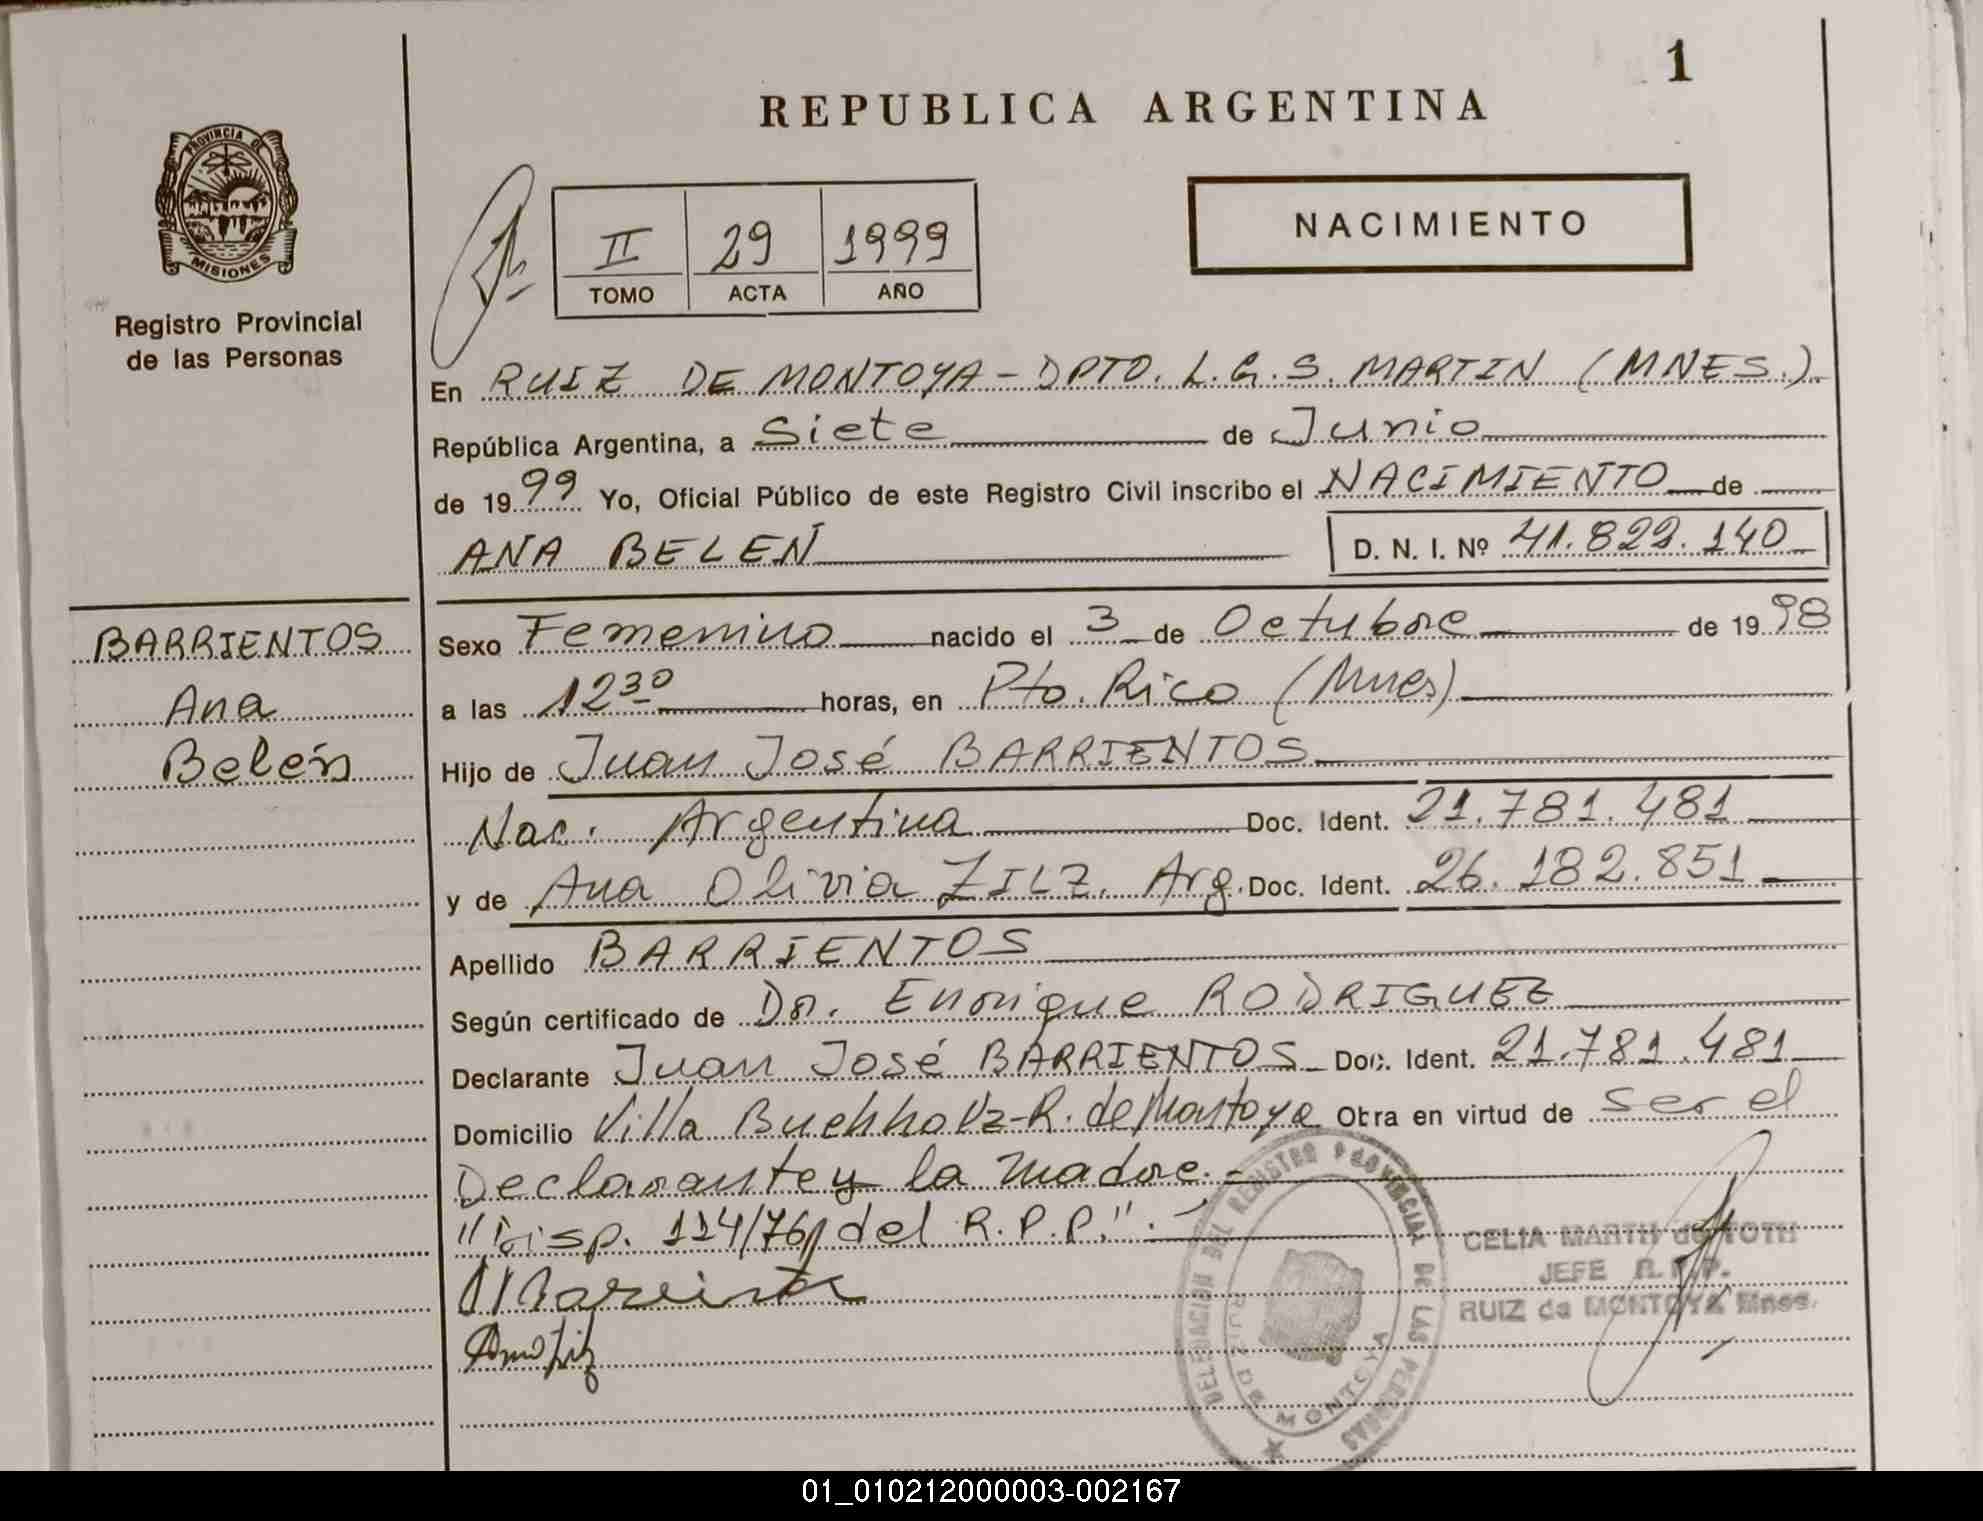 1
REPUBLICA ARGENTINA
PROVINCIA DE
MISIONES
Registro Provincial
de las Personas
II 29 1999
TOMO ACTA AÑO
NACIMIENTO
En RUIZ DE MONTOYA - DPTO. L.G.S. MARTIN (MNES.)
República Argentina, a Siete de Junio
de 1999 Yo, Oficial Público de este Registro Civil inscribo el NACIMIENTO de
ANA BELEN D. N. I. Nº 41.822.140
BARRIENTOS
Ana
Belén
Sexo Femenino nacido el 3 de Octubre de 1998
a las 12 30 horas, en Pto. Rico (Mnes)
Hijo de Juan José BARRIENTOS
Nac. Argentina Doc. Ident. 21.781.481
y de Ana Olivia ZILZ. Arg. Doc. Ident. 26.182.851
Apellido BARRIENTOS
Según certificado de Dr. Enrique RODRIGUEZ
Declarante Juan José BARRIENTOS Doc. Ident. 21.781.481
Domicilio Villa Buchholtz-R. de Montoya Obra en virtud de ser el
Declarante y la madre.-
"Disp. 114/76, del R.P.P.".-
DELEGACION DEL REGISTRO PROVINCIAL DE LAS PERSONAS
RUIZ DE MONTOYA
CELIA MARTH de TOTH
JEFE R.P.P.
RUIZ de MONTOYA Mnes.
01_010212000003-002167